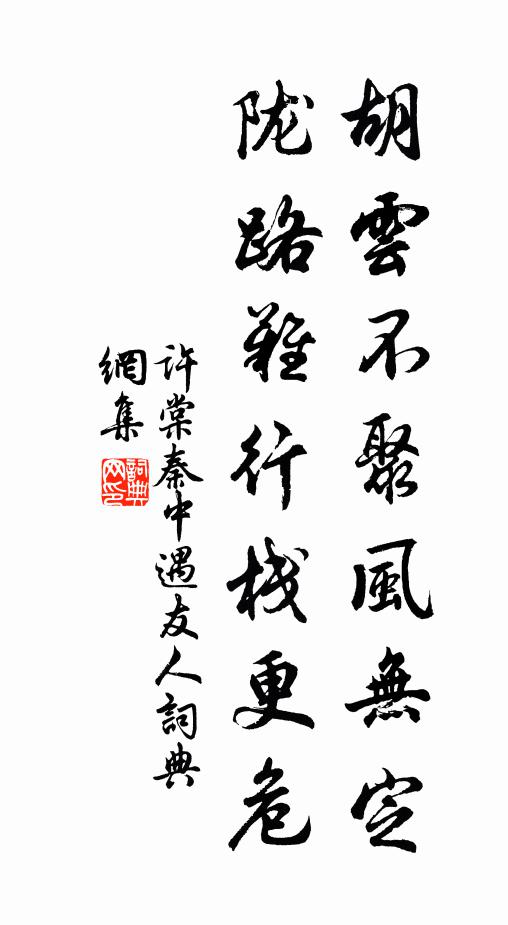 胡雲不聚風無定
陇路難行栈更危
許棠秦中遇友人詞典
網集
詞典网印